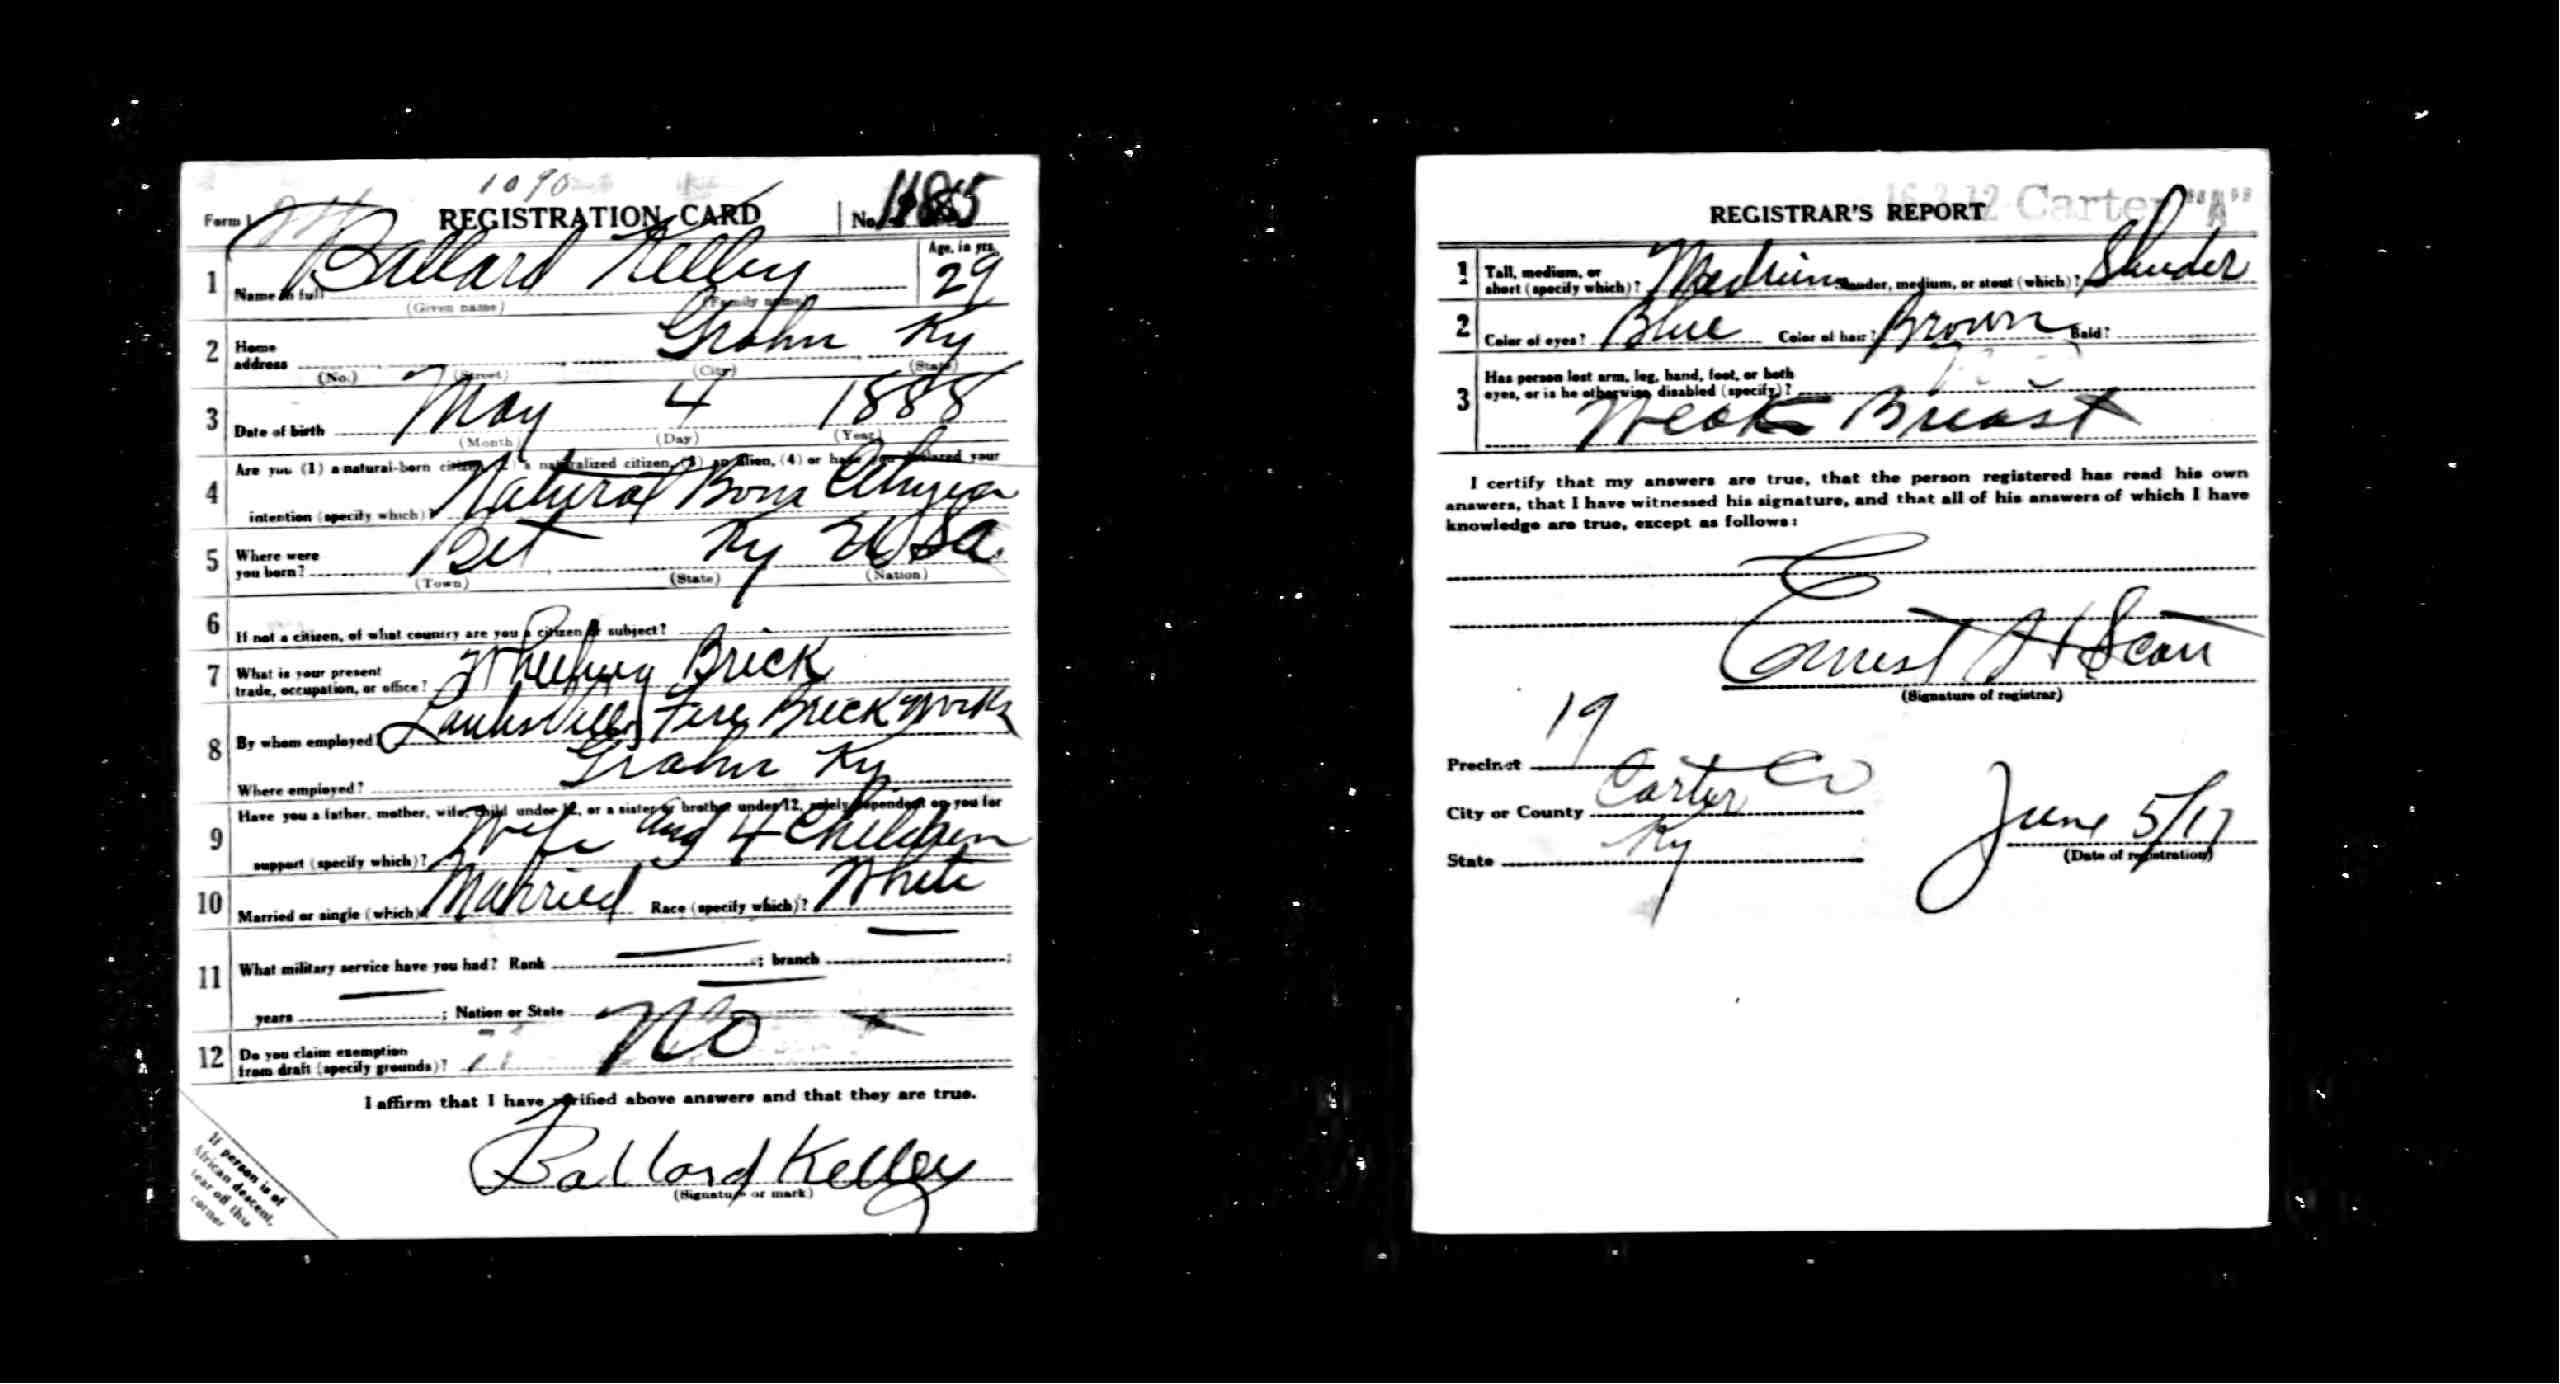 1090
Form 1 REGISTRATION CARD No. 1185
1 Name in full Ballard Kelley Age, in yrs. 29
(Given name) (Family name)
2 Home address Grahn Ky
(No.) (Street) (City) (State)
3 Date of birth May 4 1888
(Month) (Day) (Year)
4 Are you (1) a natural-born citizen, (2) a naturalized citizen, (3) an alien, (4) or have you declared your
intention (specify which)? Natural Born
5 Where were you born? Ky USA
(Town) (State) (Nation)
6 If not a citizen, of what country are you a citizen or subject?
7 What is your present trade, occupation, or office? Wheeling Brick
8 By whom employed? Fire Brick Works
Where employed? Grahn Ky
9 Have you a father, mother, wife, child under 12, or a sister or brother under 12, solely dependent on you for
support (specify which)? Wife and 4 Children
10 Married or single (which)? Married Race (specify which)? White
11 What military service have you had? Rank ; branch ;
years ; Nation or State
12 Do you claim exemption from draft (specify grounds)? No
I affirm that I have verified above answers and that they are true.
Ballard Kelley
(Signature or mark)
If person is of
African descent,
tear off this
corner
16-2-12 Carter "A"
REGISTRAR'S REPORT
1 Tall, medium, or short (specify which)? Medium Slender, medium, or stout (which)? Slender
2 Color of eyes? Blue Color of hair? Brown Bald?
3 Has person lost arm, leg, hand, foot, or both
eyes, or is he otherwise disabled (specify)?
Weak Breast
I certify that my answers are true, that the person registered has read his own
answers, that I have witnessed his signature, and that all of his answers of which I have
knowledge are true, except as follows:
Ernest H Scott
(Signature of registrar)
Precinct 19
City or County Carter Co
State Ky
June 5/17
(Date of registration)